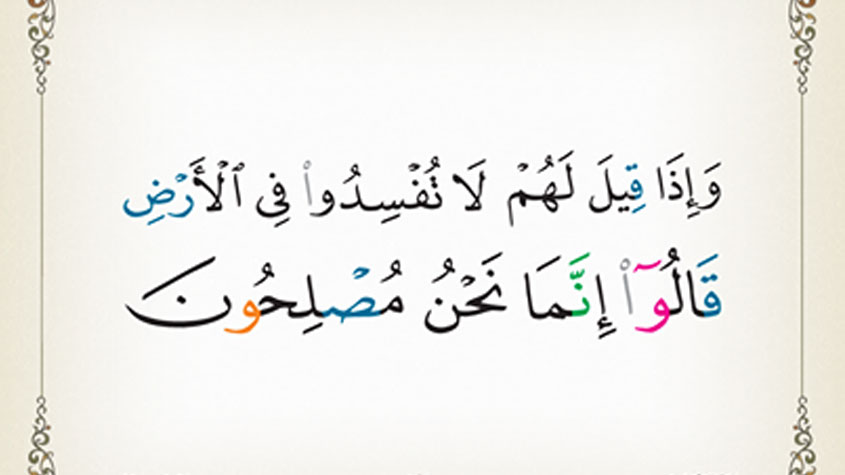 وَإِذَا قِيلَ لَهُمْ لَا تُفْسِدُوا۟ فِى ٱلْأَرْضِ
قَالُوٓا۟ إِنَّمَا نَحْنُ مُصْلِحُونَ